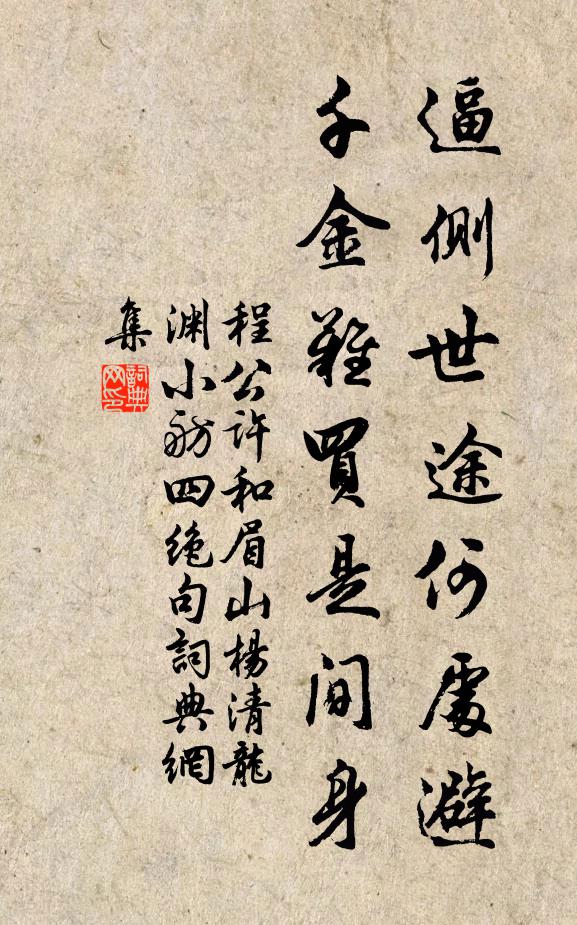 逼側世途何處避
千金難買是閒身
程公許和眉山楊清龍
渊小舫四絶句詞典網
集
詞典
网印